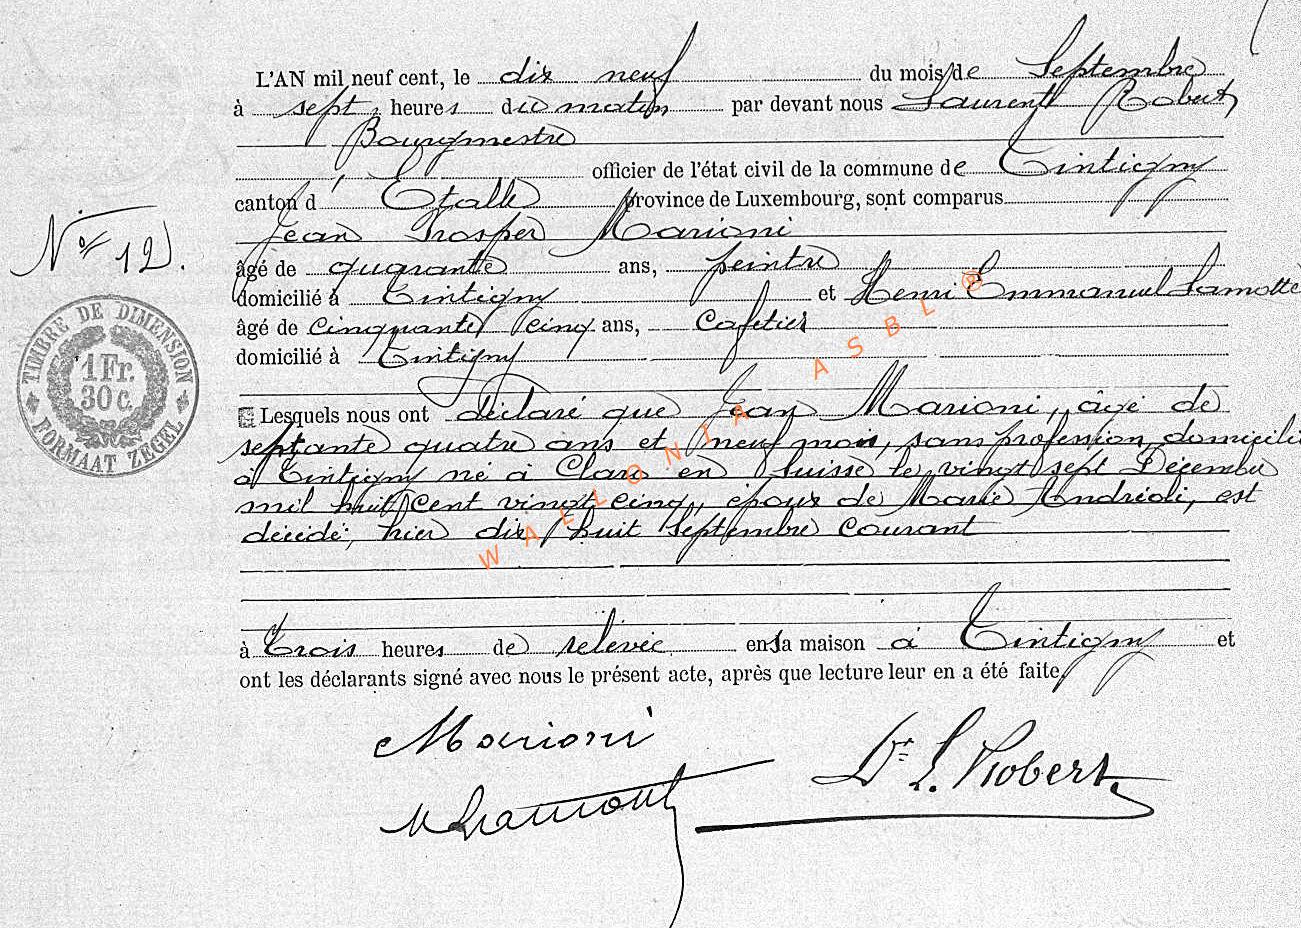 L'AN mil neuf cent, le dix neuf du mois de Septembre
à sept heures du matin par devant nous Laurent Robert,
Bourgmestre
officier de l'état civil de la commune de Tintigny
canton d'Etalle province de Luxembourg, sont comparus
Jean Prosper Marioni
âgé de quarante ans, peintre
domicilié à Tintigny et Henri Emmanuel Lamotte
âgé de cinquante cinq ans, cafetier
domicilié à Tintigny
Lesquels nous ont déclaré que Jean Marioni, âgé de
septante quatre ans et neuf mois, sans profession, domicilié
à Tintigny né à Claro en Suisse le vingt sept Décembre
mil huit cent vingt cinq, époux de Marie Andréoli, est
décédé, hier dix huit Septembre courant
à Trois heures de relevée en sa maison à Tintigny et
ont les déclarants signé avec nous le présent acte, après que lecture leur en a été faite,
Marioni
Dr L. Robert
N° 12.
TIMBRE DE DIMENSION
1 Fr.
30 c.
FORMAAT ZEGEL
WALLONIA ASBL ®